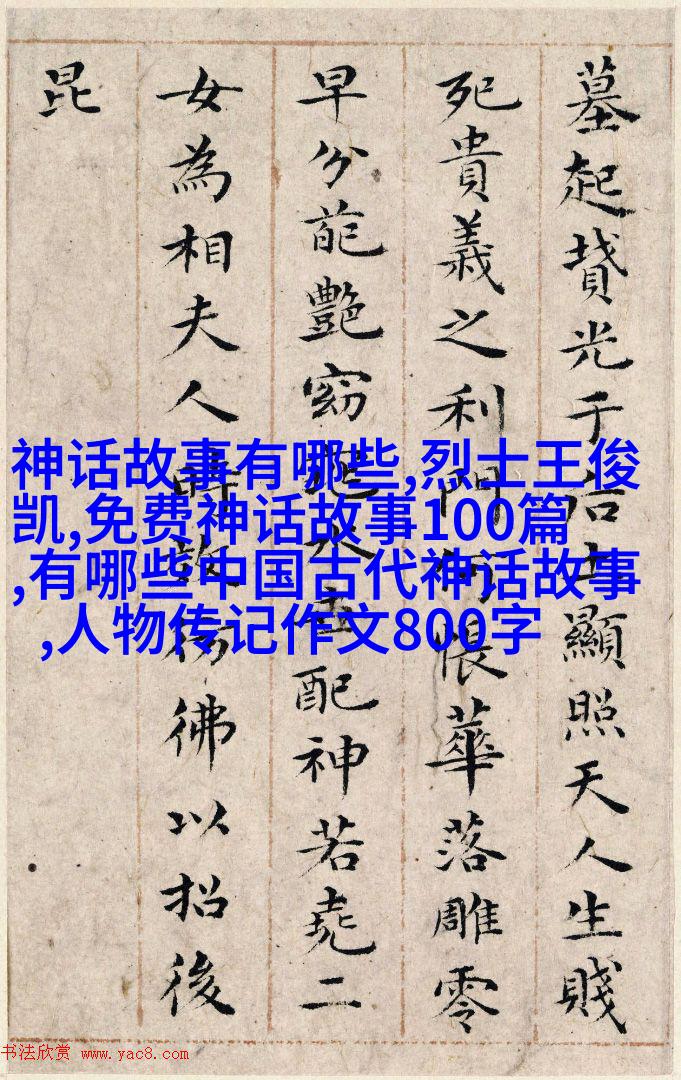 墓起墳光于后土顯照天人生賤
死貴義之利門何悵華落雕零
早分葩艷窈窕永世配神若堯二
女為相夫人時效彷彿以招後
昆
神话故事有哪些,烈士王俊
凯,免费神话故事100篇
,有哪些中国古代神话故事
,人物传记作文800字
书法欣赏 www.yac8.com